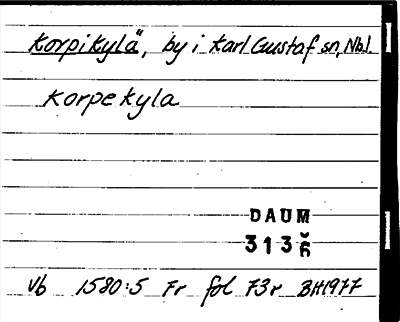 Korpikylä, by i Karl Gustaf sn, Nbl.
Korpekyla
DAUM
313
Vb 1580:5 Fr fol 73r BH1977